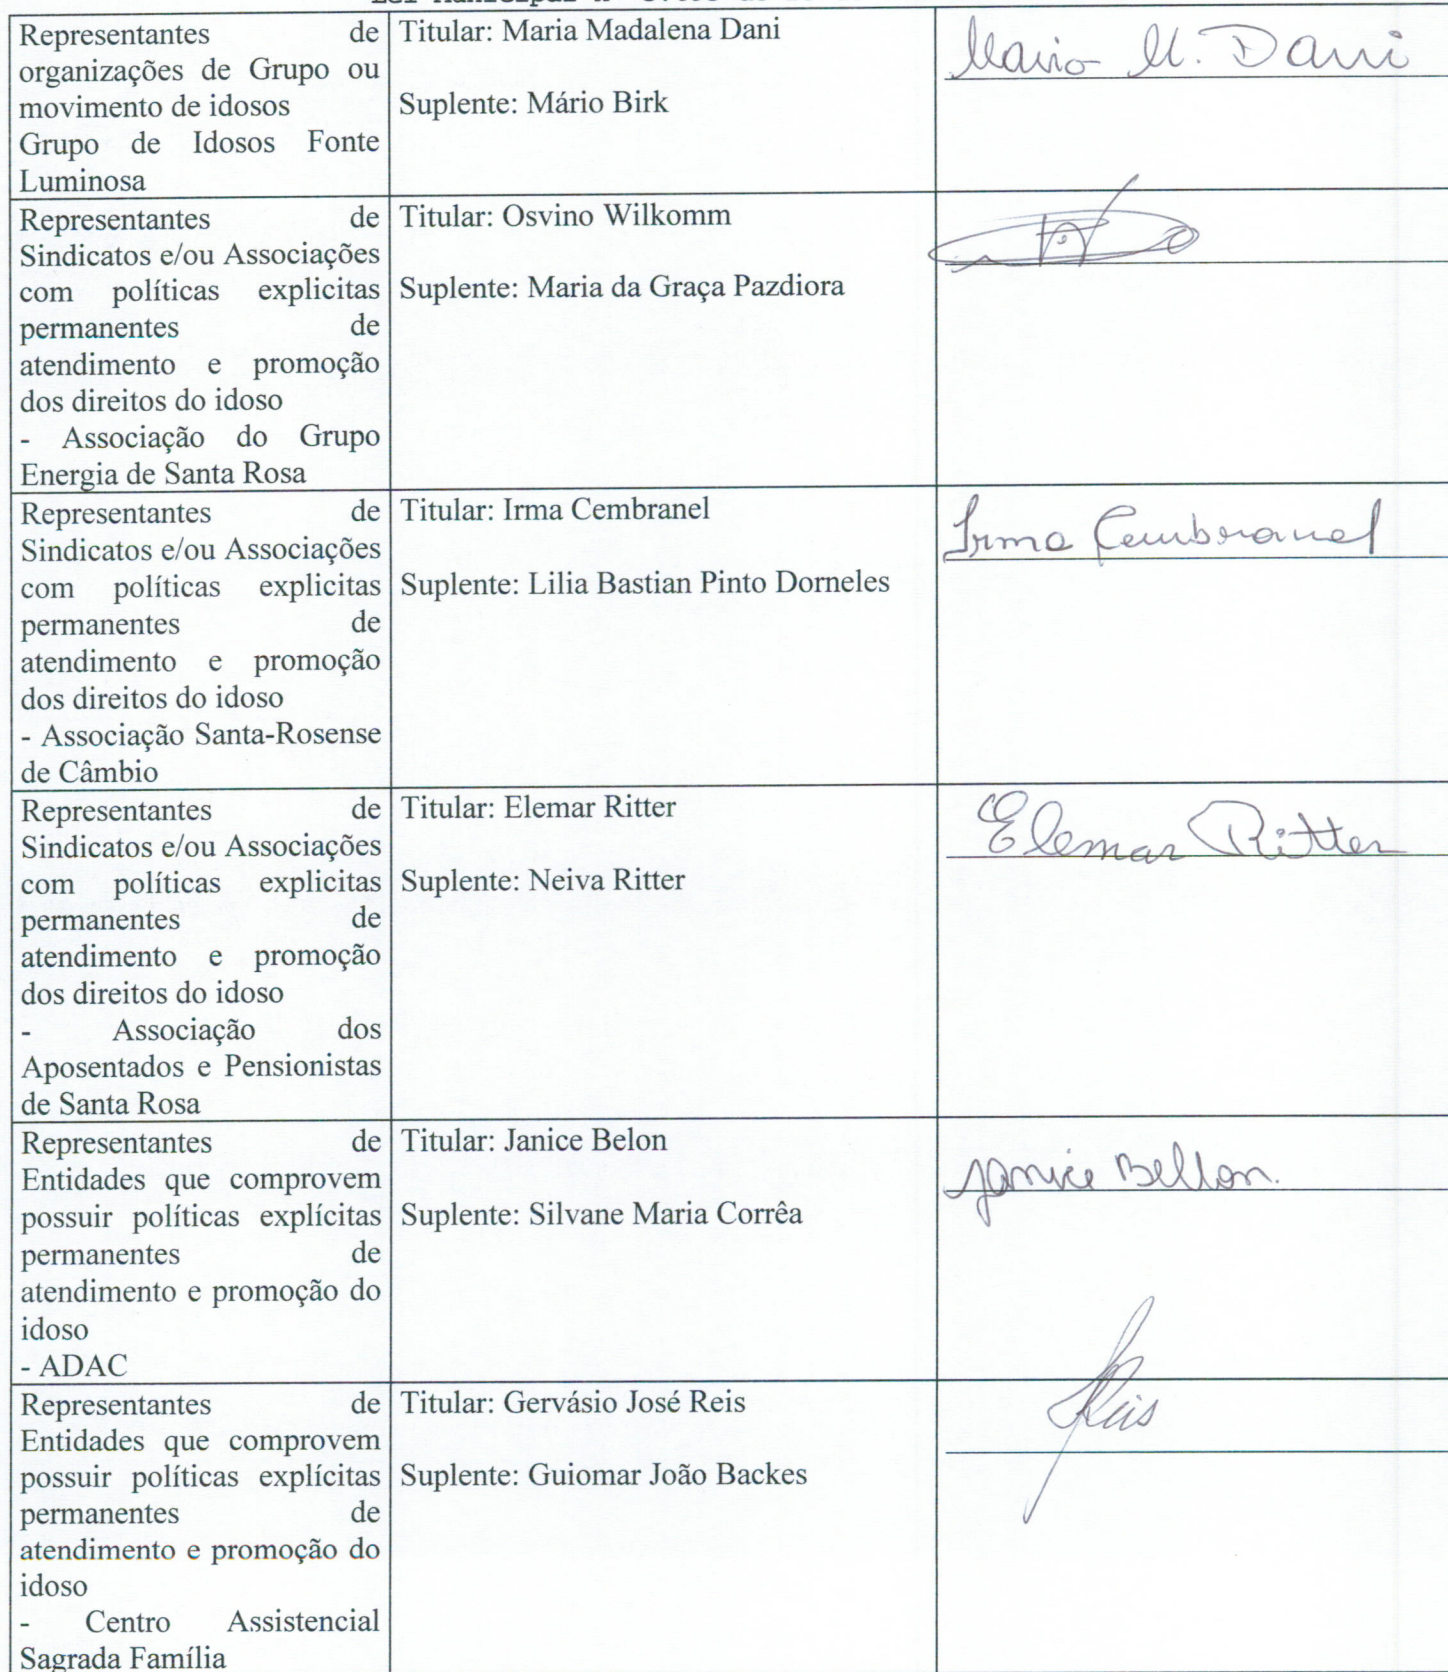 Representantes de
organizações de Grupo ou
movimento de idosos
Grupo de Idosos Fonte
Luminosa
Titular: Maria Madalena Dani
Suplente: Mário Birk
Maria M. Dani
Representantes de
Sindicatos e/ou Associações
com políticas explicitas
permanentes de
atendimento e promoção
dos direitos do idoso
- Associação do Grupo
Energia de Santa Rosa
Titular: Osvino Wilkomm
Suplente: Maria da Graça Pazdiora
Representantes de
Sindicatos e/ou Associações
com políticas explicitas
permanentes de
atendimento e promoção
dos direitos do idoso
- Associação Santa-Rosense
de Câmbio
Titular: Irma Cembranel
Suplente: Lilia Bastian Pinto Dorneles
Irma Cembranel
Representantes de
Sindicatos e/ou Associações
com políticas explicitas
permanentes de
atendimento e promoção
dos direitos do idoso
- Associação dos
Aposentados e Pensionistas
de Santa Rosa
Titular: Elemar Ritter
Suplente: Neiva Ritter
Elemar Ritter
Representantes de
Entidades que comprovem
possuir políticas explícitas
permanentes de
atendimento e promoção do
idoso
- ADAC
Titular: Janice Belon
Suplente: Silvane Maria Corrêa
Janice Bellon.
Representantes de
Entidades que comprovem
possuir políticas explícitas
permanentes de
atendimento e promoção do
idoso
- Centro Assistencial
Sagrada Família
Titular: Gervásio José Reis
Suplente: Guiomar João Backes
Reis